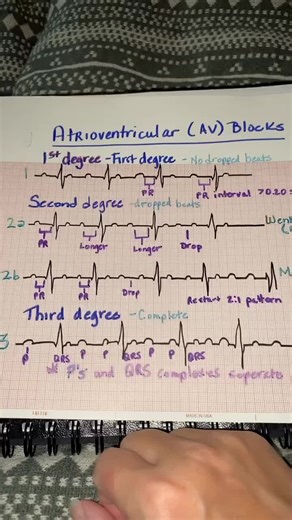 ATRIOVENTRICULAR (AV) BLOCKS
1st degree - First degree - No dropped beats
1
PR PR PR interval >0.20
Second degree - dropped beats
2a
PR Longer Longer Drop
2b
PR PR Drop Restart 2:1 pattern
Third degree - Complete
3
P QRS P P QRS P P QRS
P's and QRS complexes seperate
MADE IN USA